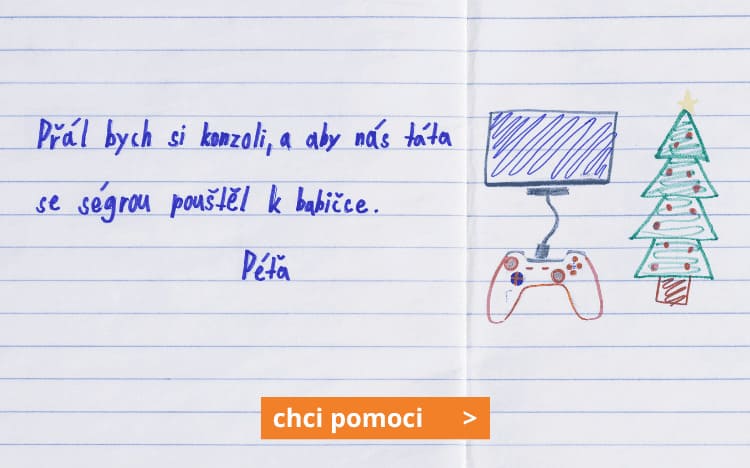 Přál bych si konzoli, a aby nás táta
se ségrou pouštěl k babičce.
Péťa
chci pomoci >